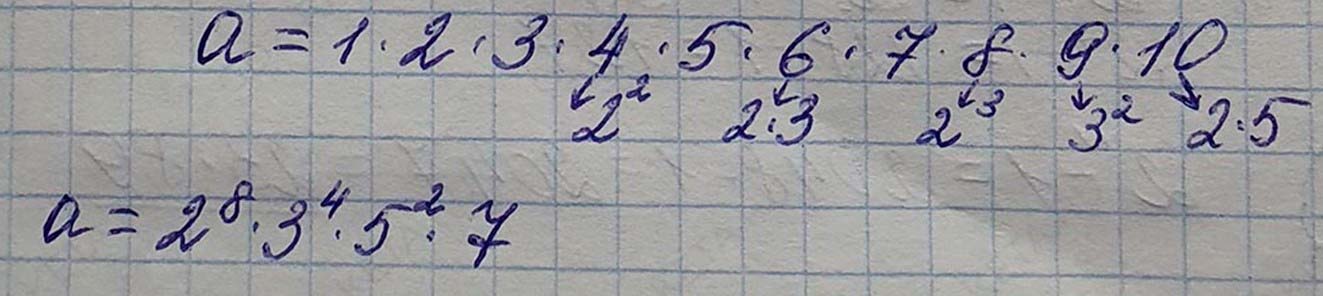 a = 1 · 2 · 3 · 4 · 5 · 6 · 7 · 8 · 9 · 10
2² 2·3 2³ 3² 2·5
a = 2⁸ · 3⁴ · 5² · 7